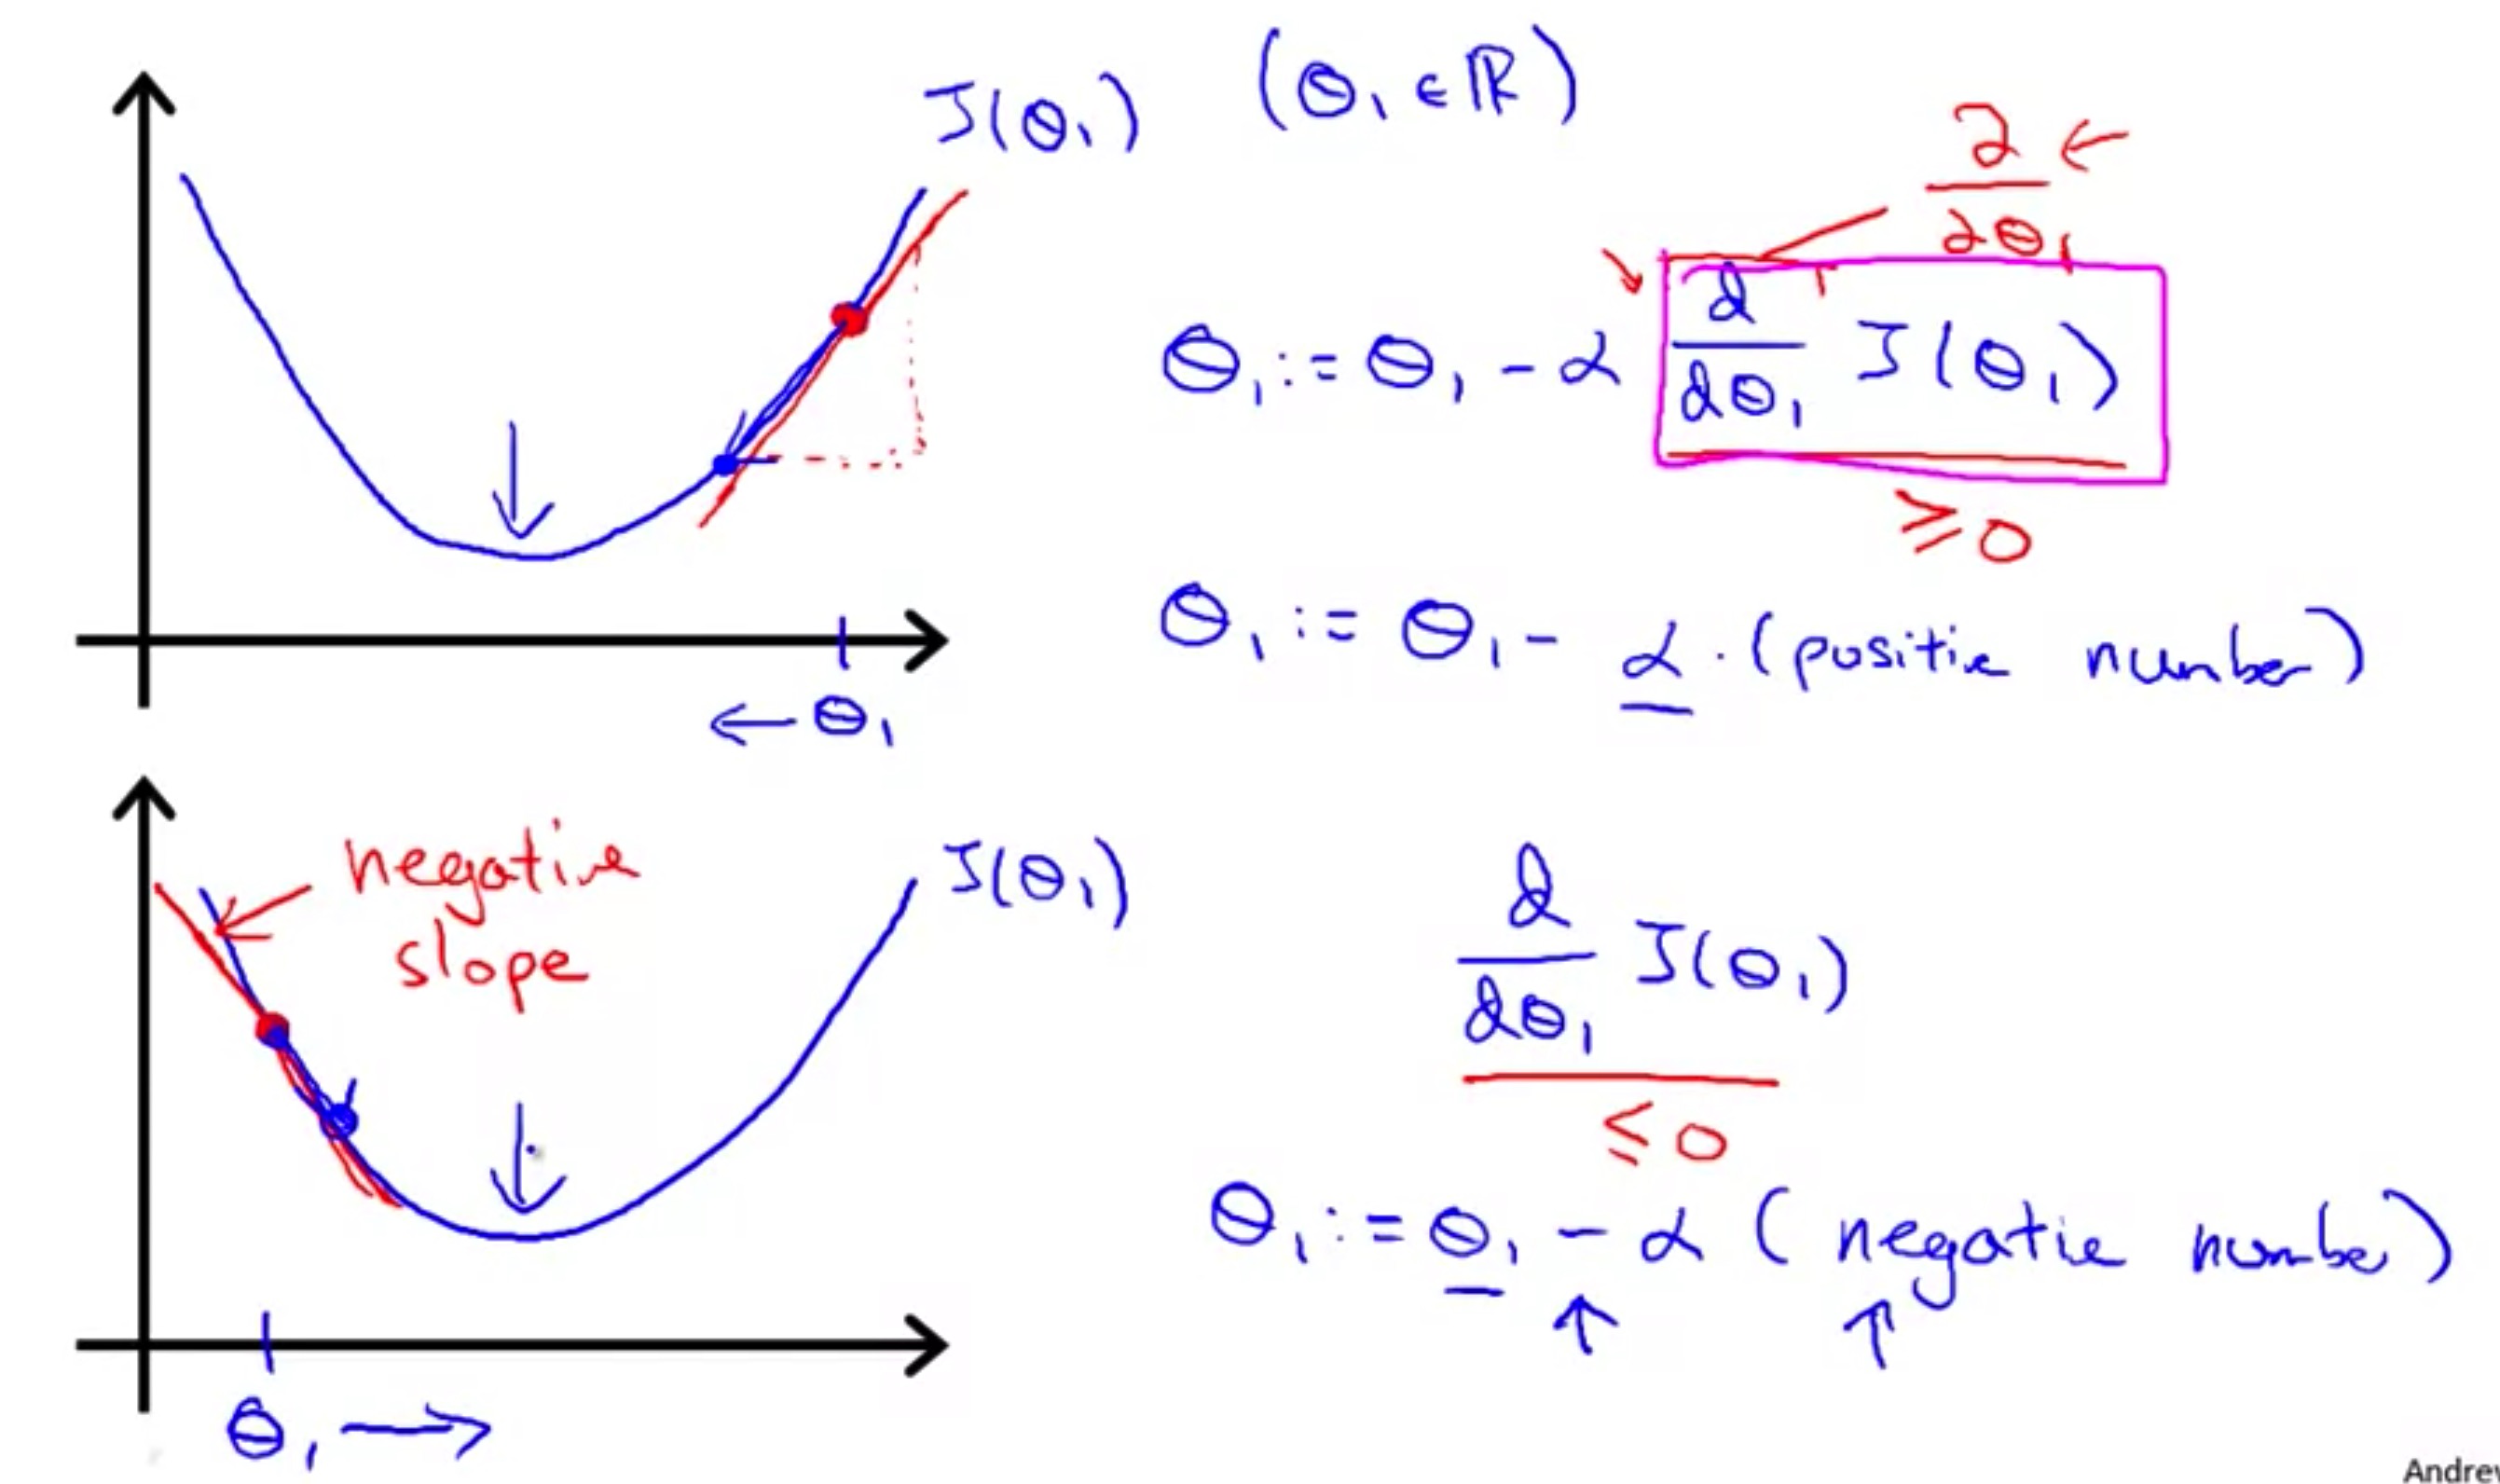 J(θ₁) (θ₁ ∈ ℝ)
∂
∂θ₁
θ₁ := θ₁ - α d/dθ₁ J(θ₁)
≥ 0
θ₁ := θ₁ - α · (positive number)
θ₁
negative
slope
J(θ₁)
d/dθ₁ J(θ₁)
≤ 0
θ₁ := θ₁ - α (negative number)
θ₁
Andrew